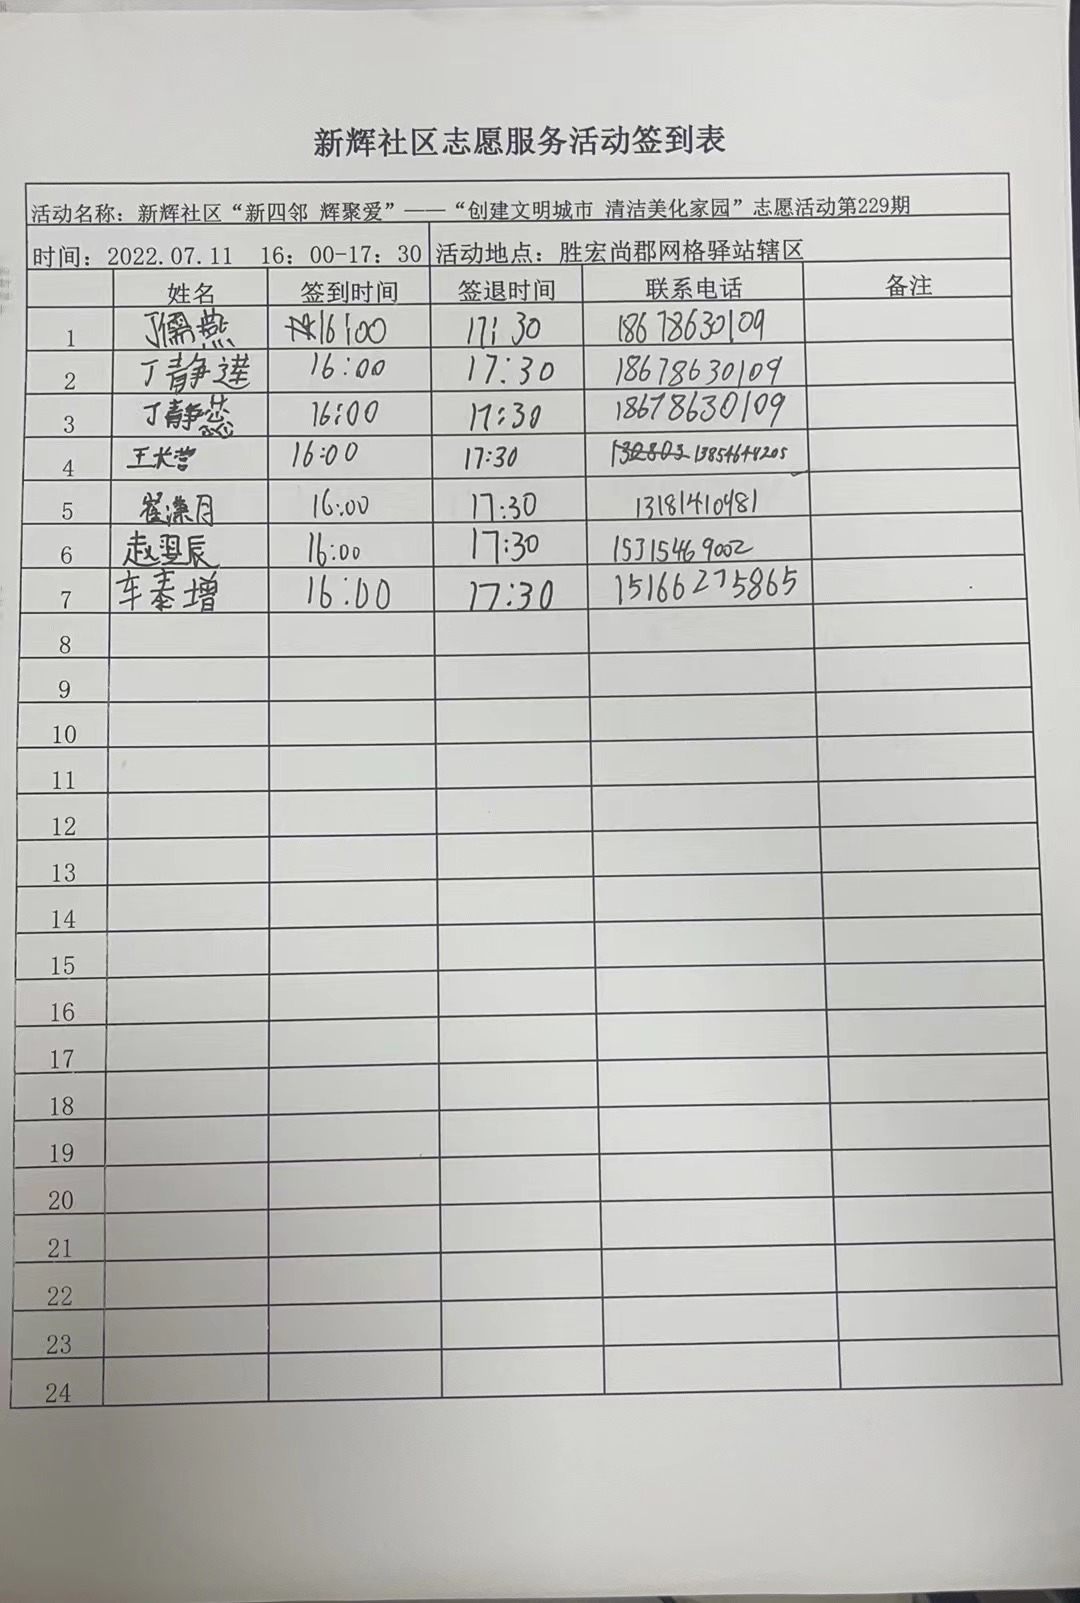 新辉社区志愿服务活动签到表
活动名称：新辉社区“新四邻 辉聚爱”——“创建文明城市 清洁美化家园”志愿活动第229期
时间：2022.07.11 16：00-17：30 活动地点：胜宏尚郡网格驿站辖区
姓名 签到时间 签退时间 联系电话 备注
1 丁儒燕 16:00 17:30 18678630109
2 丁静 16:00 17:30 18678630109
3 丁静蕊 16:00 17:30 18678630109
4 王长营 16:00 17:30 13854644205
5 崔濂月 16:00 17:30 13181410481
6 赵翌辰 16:00 17:30 15315469002
7 车泰增 16:00 17:30 15166275865
8
9
10
11
12
13
14
15
16
17
18
19
20
21
22
23
24